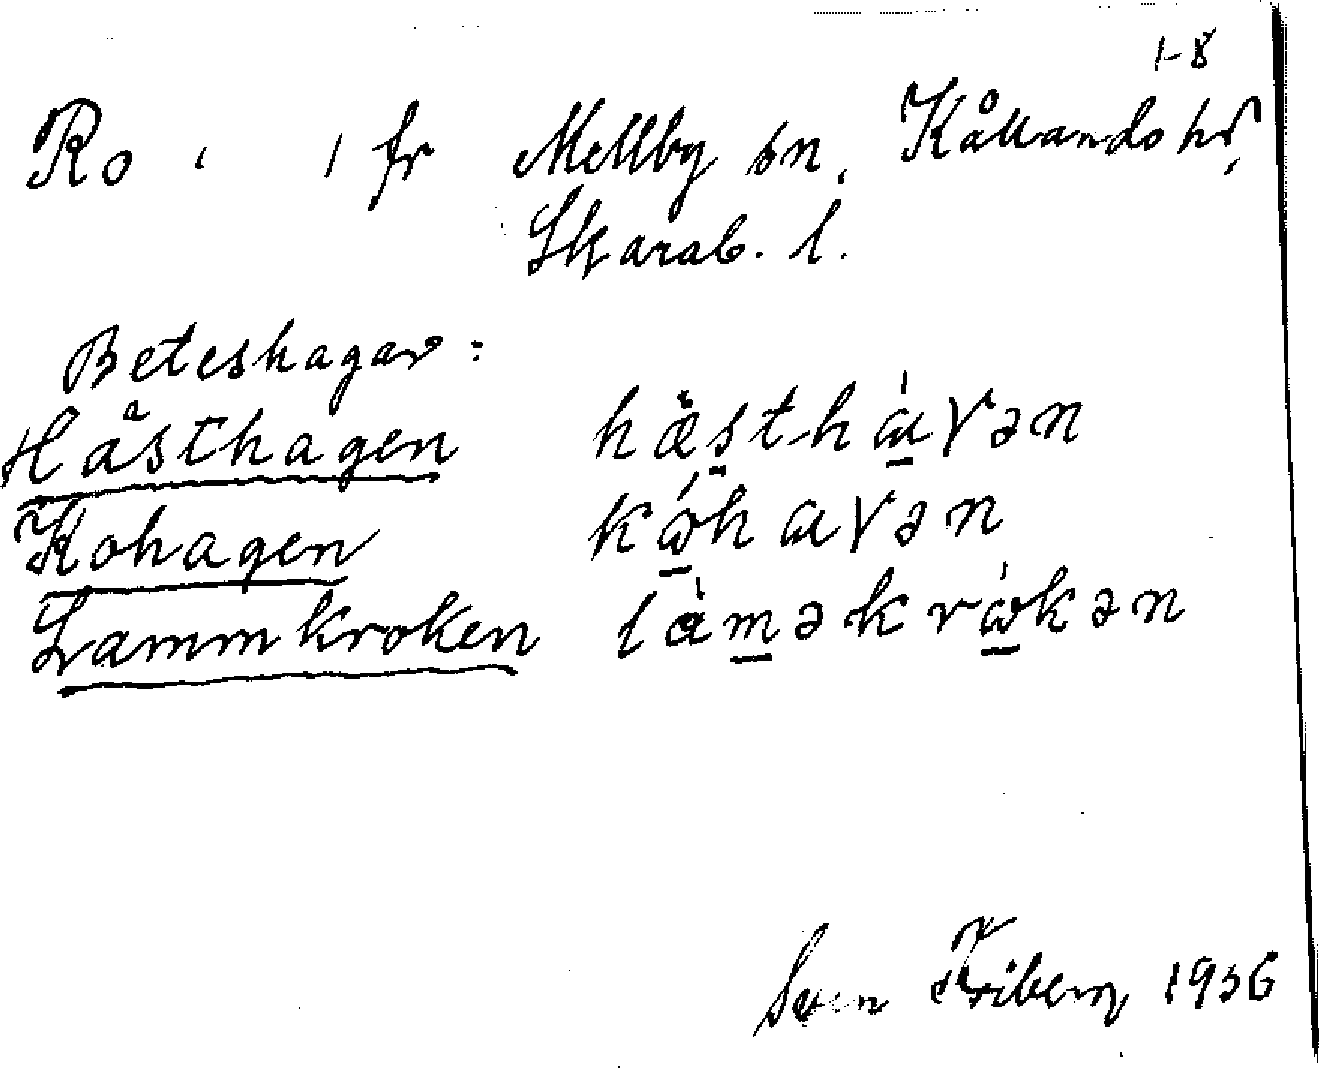 1-8
Ro , 1 fr Mellby sn, Kållands hd,
Skarab. l.
Beteshagar:
Hästhagen hæ̀sthàɣən
Kohagen kóhaɣən
Lammkroken làməkròkən
Sven Friberg 1936